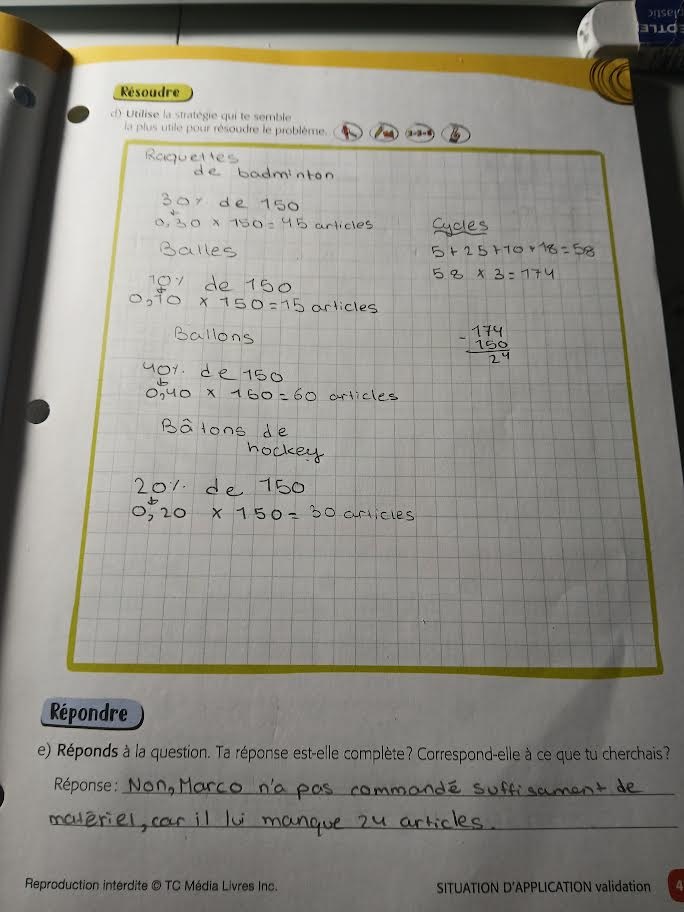 Résoudre
d) Utilise la stratégie qui te semble
la plus utile pour résoudre le problème.
Raquettes
de badminton
30% de 150
0,30 x 150 = 45 articles
Balles
10% de 150
0,10 x 150 = 15 articles
Ballons
40% de 150
0,40 x 150 = 60 articles
Bâtons de
hockey
20% de 150
0,20 x 150 = 30 articles
Cycles
5 + 25 + 10 + 18 = 58
58 x 3 = 174
- 174
150
24
Répondre
e) Réponds à la question. Ta réponse est-elle complète? Correspond-elle à ce que tu cherchais?
Réponse : Non, Marco n'a pas commandé suffisament de
matériel, car il lui manque 24 articles.
Reproduction interdite © TC Média Livres Inc.
SITUATION D'APPLICATION validation
4